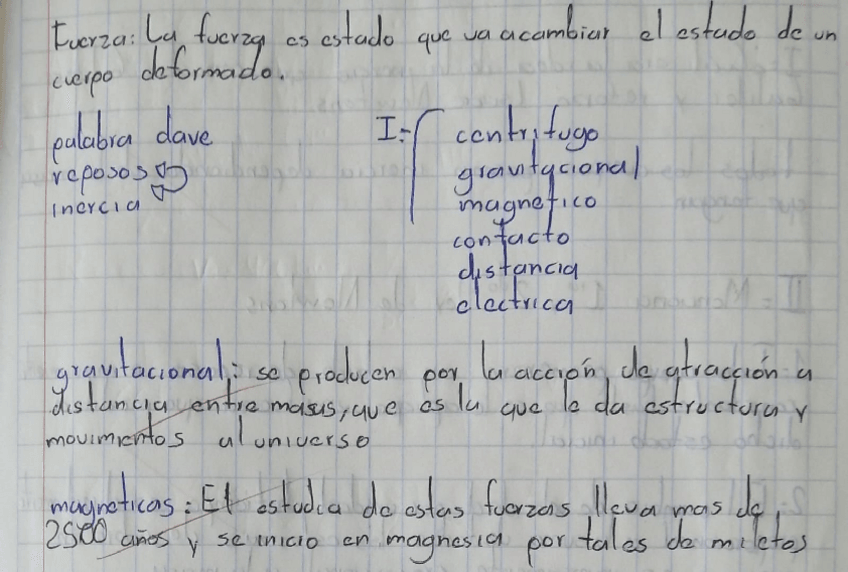 Fuerza: La fuerza es estado que va acambiar el estado de un
cuerpo deformado.
palabra clave
reposos
inercia
I:
centrifugo
gravitacional
magnetico
contacto
distancia
electrica
gravitacional: se producen por la acción de atracción a
distancia entre masas, que es la que le da estructura y
movimientos al universo
magneticas: El estudia de estas fuerzas lleva mas de
2500 años y se inicio en magnesia por tales de miletos